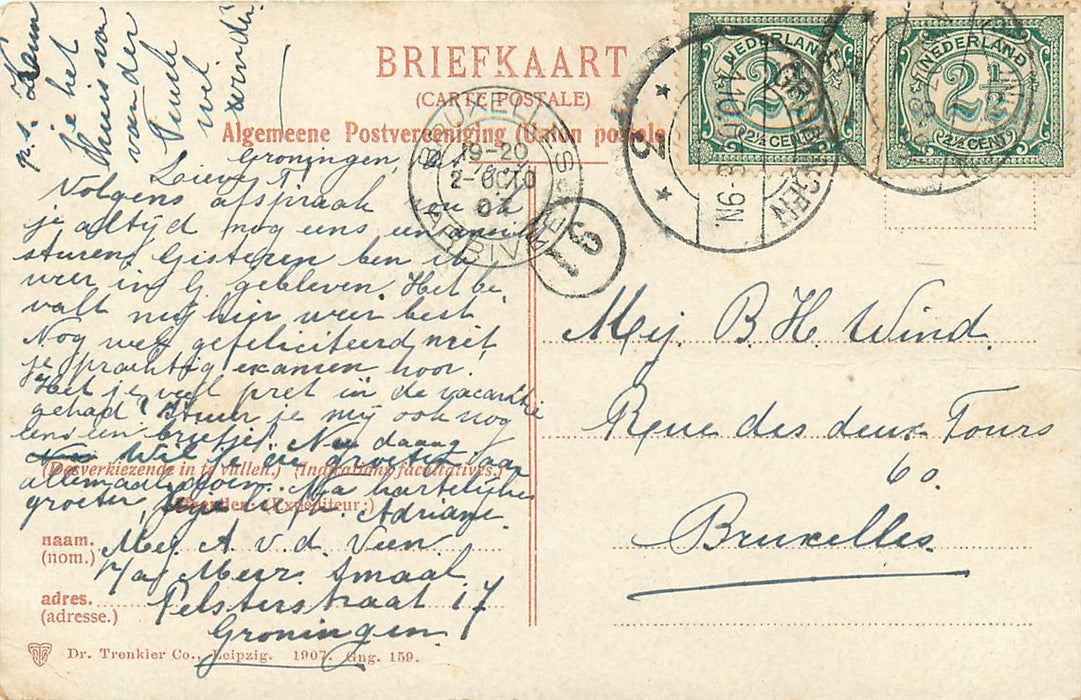 p.s. Leun
je het
Thuis van
van der
Tuuk
wel
vinden?
BRIEFKAART
(CARTE POSTALE)
Algemeene Postvereeniging (Union postale
Groningen,
Lieve T
Volgens afspraak zou ik
je altijd nog eens
sturen. Gisteren ben ik
weer in G. gebleven. Het be-
valt mij hier weer best
Nog wel gefeliciteerd met
je prachtig examen hoor.
Heb je veel pret in de vacantie
gehad? Stuur je mij ook nog
eens een briefje? Nu daaag
Wil je de groeten aan
allemaal doen. Na hartelijke
groeten, Adriane.
(Desverkiezende in te vullen.) (Indications facultatives.)
Afzender: (Expéditeur:)
naam. Mej A v. d. Veen
(nom.) p/a Mevr. Smaal
adres. Pelsterstraat 17
(adresse.) Groningen
Dr. Trenkler Co., Leipzig. 1907. Gng. 159.
BRUXELLES
19-20
2-OCTO
07
ARRIVÉE
16
NEDERLAND
2½
(2½ CENT)
NEDERLAND
2½
(2½ CENT)
GRONINGEN
3
Mej. B. H. Wind.
Rue des deux Tours
60.
Bruxelles.